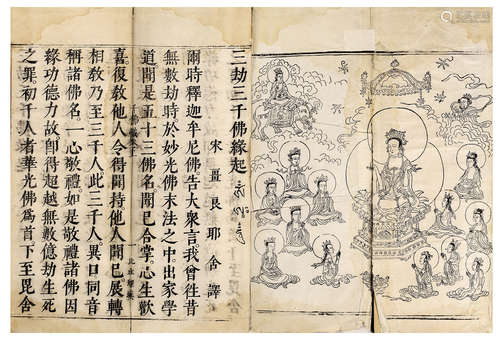 三劫三千佛緣起
宋畺良耶舍譯
爾時釋迦牟尼佛告大衆言我曾往昔
無數劫時於妙光佛末法之中出家學
道聞是五十三佛名聞已合掌心生歡
喜復敎他人令得聞持他人聞已展轉
相敎乃至三千人此三千人異口同音
稱諸佛名一心敬禮如是敬禮諸佛因
緣功德力故卽得超越無數億劫生死
之罪初千人者華光佛爲首下至毘舍